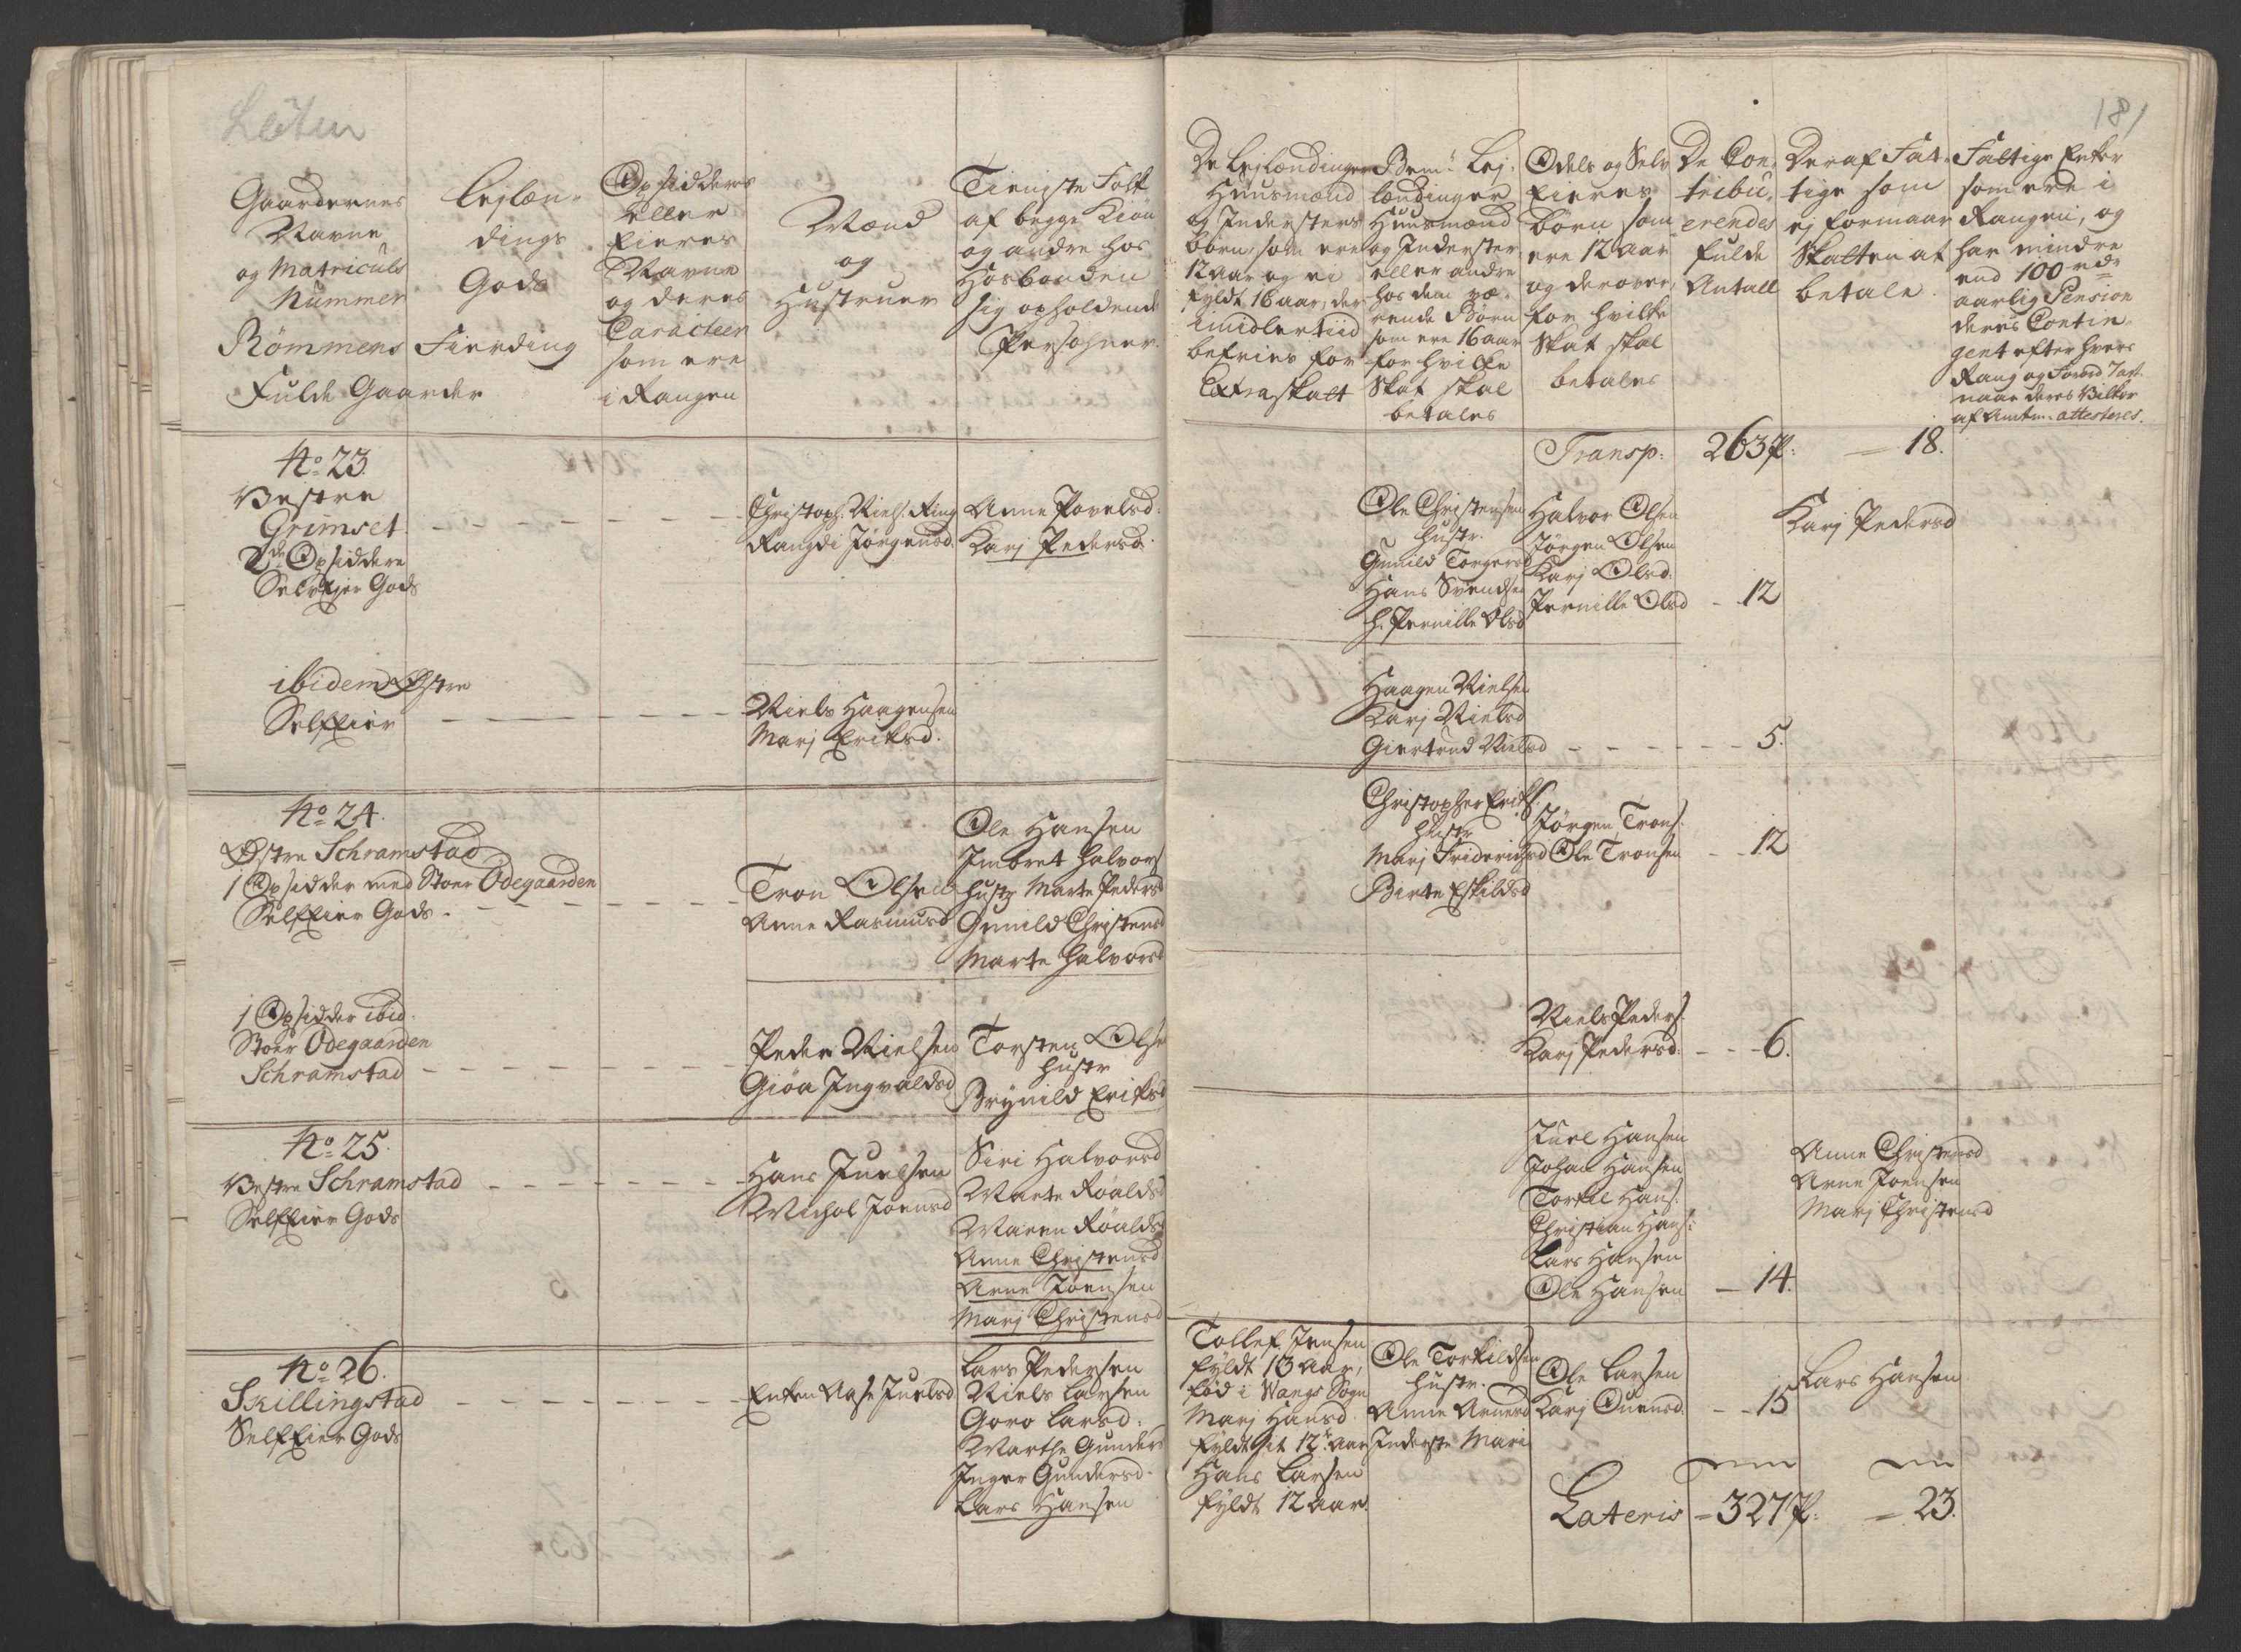 Løten
181
Gaardernes
Navne
og Matriculs
Nummer
Rømmens Fierding
Fulde Gaarder
Lejlæn-
dings
Gods
Opsidderes
eller
Eieres
Navne
og deres
Caracteer
som ere
i Rangen
Mænd
og
Hustruer
Tieniste Folk
af begge Kiøn
og andre hos
Hosbonden
sig opholdende
Persohner.
De Lejlændinger
Huusmænd
og Indersters
børn, som ere
12 aar og ei
fyldt 16 aar, der
imidlertiid
befries for
Extraskatt
Bem.te Lej-
lændinger
Huusmænd
og Inderster
eller andre
hos dem væ-
rende Børn
som ere 16 aar
for hvilke
Skat skal
betales
Odels og Selv
Eieres
børn som
ere 12 aar
og derover,
for hvilke
Skat skal
betales
De Con-
tribu-
erendes
fulde
Antall
Deraf Fat-
tige som
ej formaar
Skatten at
betale.
Fattige Enker
som ere i
Rangen, og
har mindre
end 100 rdr
aarlig Pension
deres Contin-
gent efter hvers
Rang og
naar deres Vilkor
af Amtm: attesteres.
Transp: 263 P: — 18.
No 23
Vestre
Grimset
2de Opsiddere
SelvEjer Gods
Christoph: Niels: Ring
Rangdi Jørgensd:
Anne Povelsd:
Karj Pedersd:
Ole Christensen
hustr:
Gunild Torgersd
Hans Svendsen
h. Pernille Olsd
Halvor Olsen
Jørgen Olsen
Karj Olsd:
Pernille Olsd - 12
Karj Pedersd
ibidem Østre
SelfEier
Niels Haagensen
Marj Eriksd:
Haagen Nielsen
Karj Nielsd
Giertrud Nielsd - - - - - - 5.
No 24.
Østre Schramstad
1 Opsidder med Stoer Ødegaarden
SelfEier Gods -
Tron Olsen
Anne Rasmusd
Ole Hansen
Imbret Halvors:
hustr Marte Pedersd
Gunild Christensd
Marte Halvorsd
Christopher Eriks:
hustr
Marj Friderichsd
Birte Eskildsd
Jørgen Trons:
Ole Tronsen - - 12
1 Opsidder ibid:
Stoer Ødegaarden
Schramstad
Peder Nielsen
Giøa Ingvaldsd
Torsten Olsen
hustr
Brynild Eriksd
Niels Peders:
Karj Pedersd: - - 6.
No 25.
Vestre Schramstad
SelfEier Gods
Hans Juelsen
Michol Joensd
Siri Halvorsd
Marte Roaldsd
Maren Roaldsd
Anne Christensd
Arne Joensen
Marj Christensd
Juel Hansen
Johan Hansen
Torkil Hans:
Christian Hans:
Lars Hansen
Ole Hansen — 14.
Anne Christensd
Arne Joensen
Marj Christensd
No 26.
Skillingstad
SelfEier Gods
Enken Aase Juelsd
Lars Pedersen
Niels Larsen
Goro Larsd:
Marthe Gunders
Inger Gundersd:
Lars Hansen
Tollef Jensen
fyldt 13 aar,
fød i Wangs Sogn
Marj Hansd:
fyldt sit 12te aar
Hans Larsen
fyldt 12 aar.
Ole Torkildsen
hustr:
Anne Arnesd
Inderste Mari
Ole Larsen
Karj Ouensd. - - 15
Lars Hansen
Lateris - 327 P: — 23.